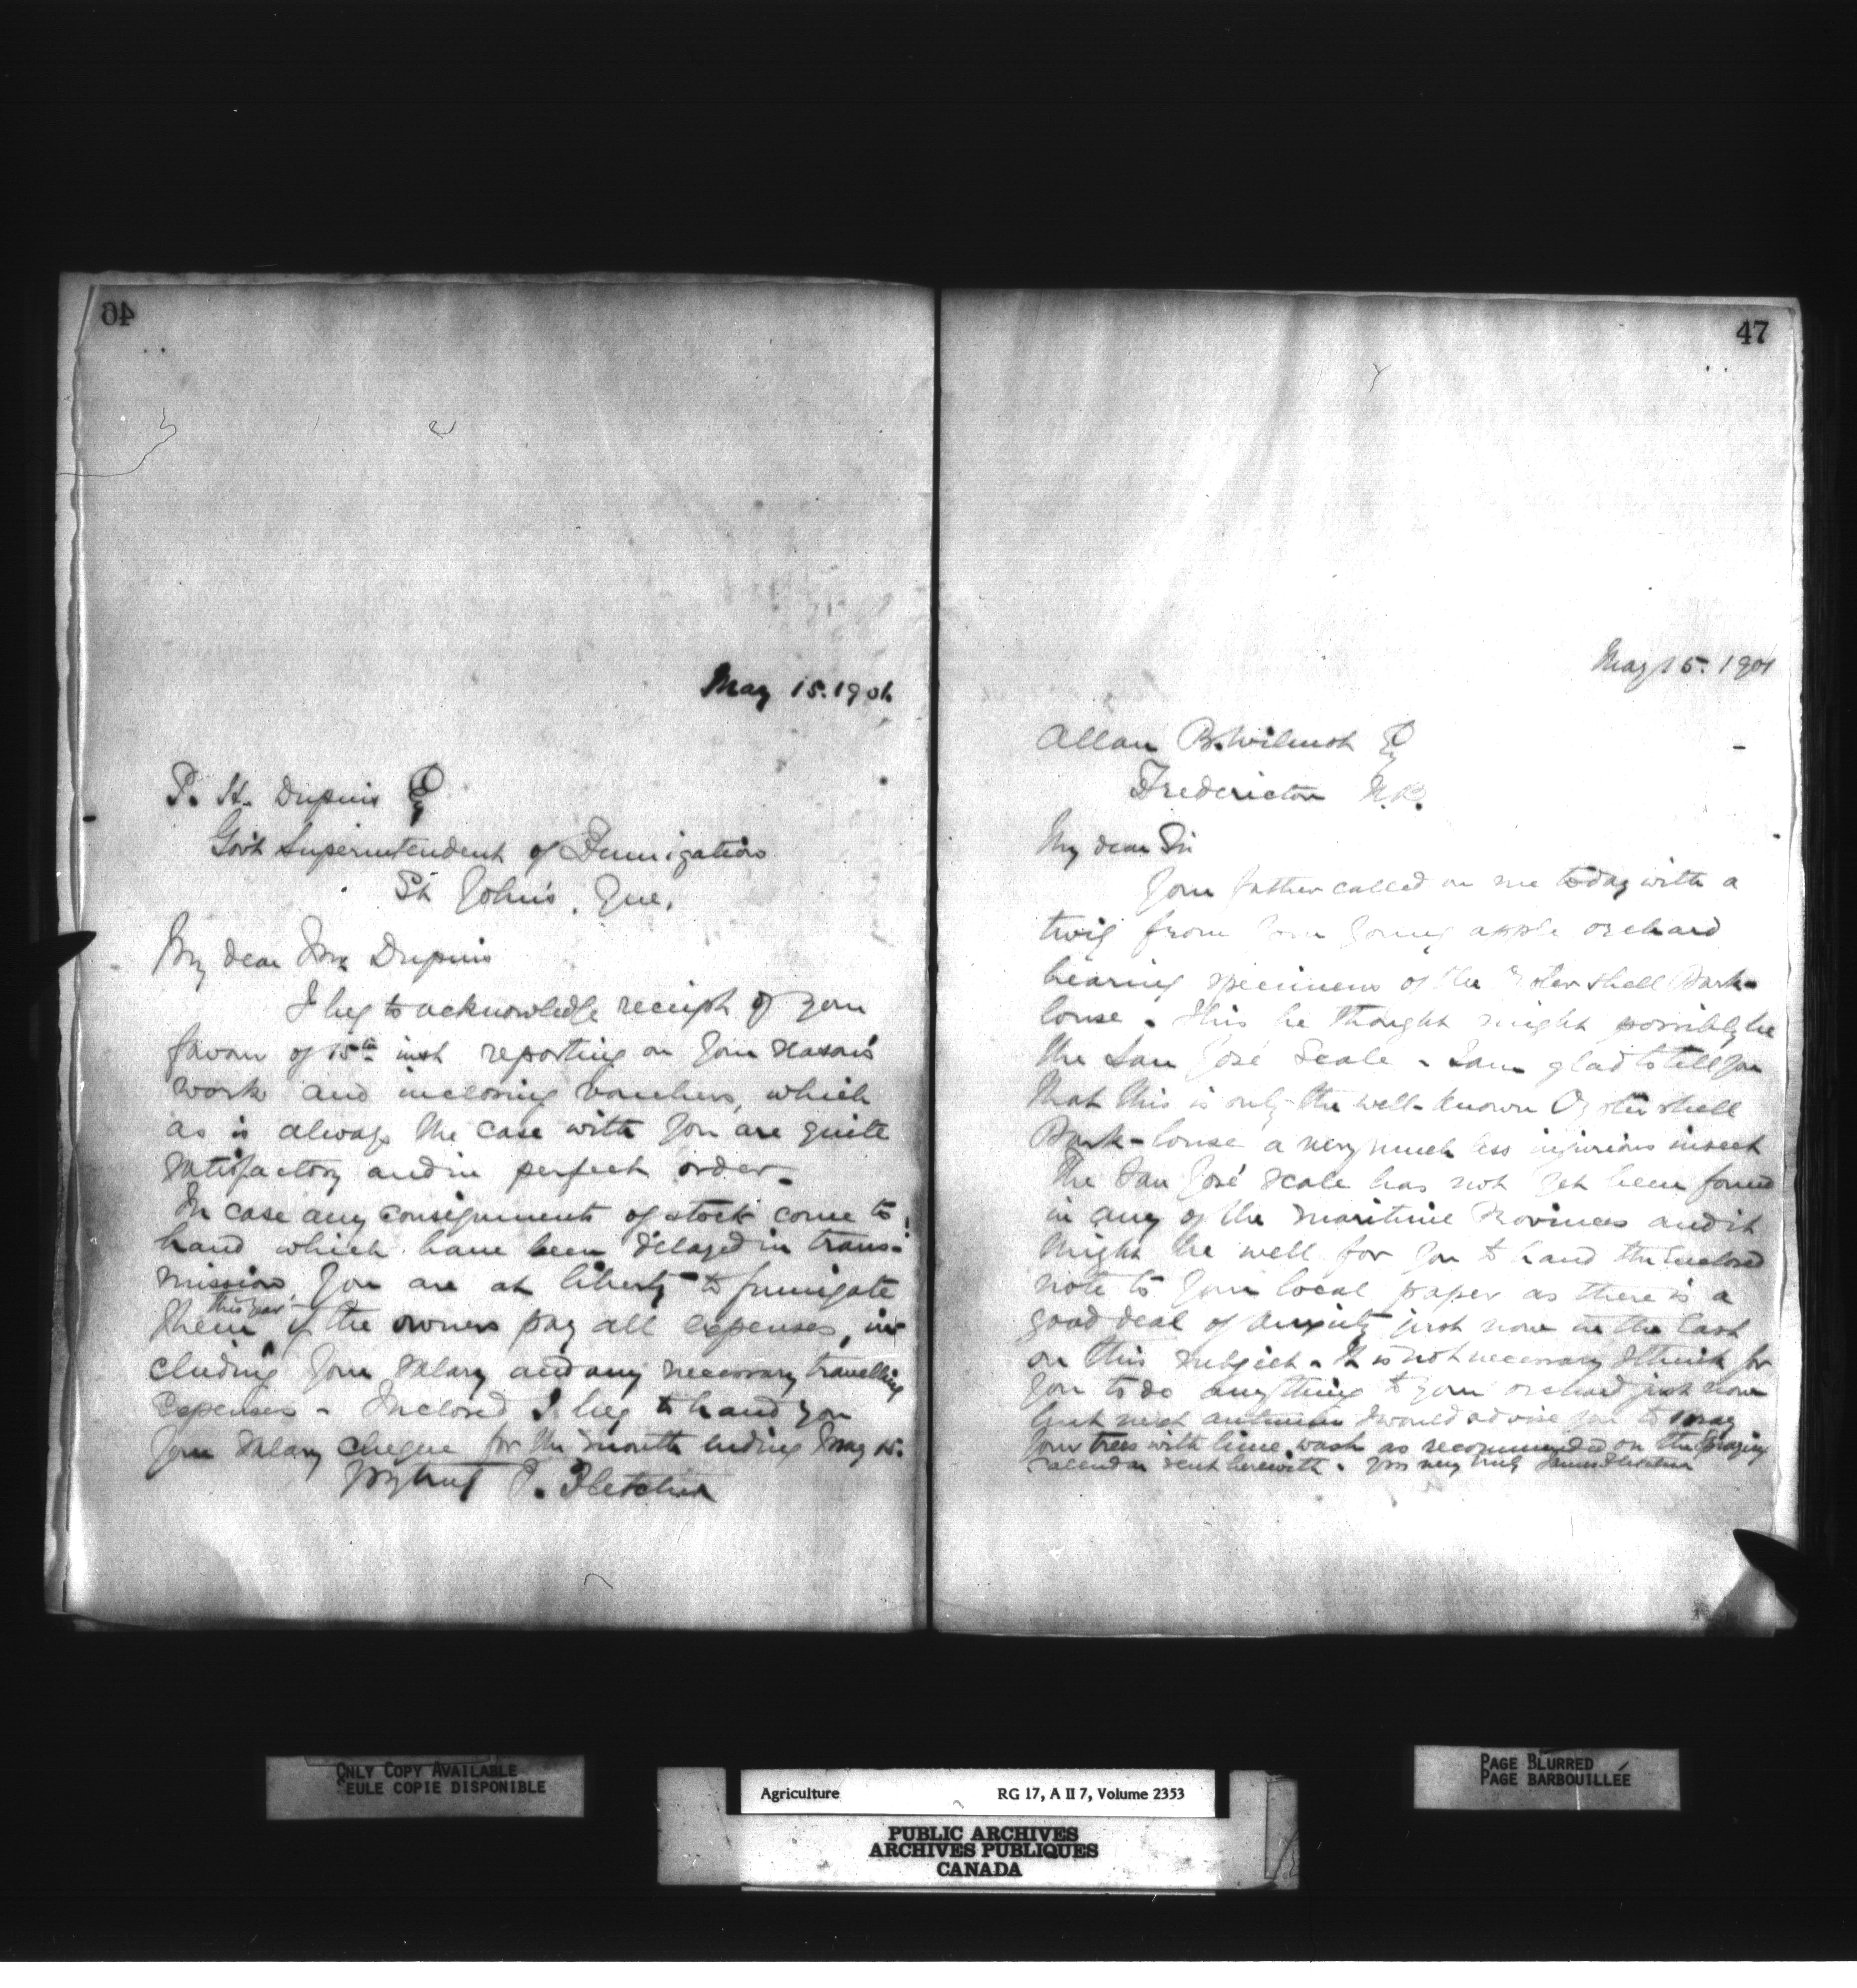 46
May 15. 1901
P. H. Dupuis Esq
Govt Superintendent of Fumigation
St John's, Que.
My dear Mr Dupuis
I beg to acknowledge receipt of your
favour of 15th inst reporting on your season's
work and inclosing vouchers, which
as is always the case with you are quite
satisfactory and in perfect order.
In case any consignments of stock come to
hand which have been delayed in trans-
mission, you are at liberty to fumigate
them this year if the owners pay all expenses, in-
cluding your salary and any necessary travelling
expenses - Inclosed I beg to hand you
your salary cheque for the month ending May 15.
J. Fletcher
47
May 15. 1901
Allan B. Wilmot Esq
Fredericton N.B.
My dear Sir
Your father called on me today with a
twig from your young apple orchard
bearing specimens of the Oyster shell Bark-
louse. This he thought might possibly be
the San José Scale - I am glad to tell you
that this is only the well-known Oyster shell
Bark-louse a very much less injurious insect
The San José scale has not yet been found
in any of the Maritime Provinces and it
might be well for you to hand the enclosed
note to your local paper as there is a
good deal of anxiety just now in the East
on this subject. It is not necessary I think for
you to do anything to your orchard just now
but next autumn I would advise you to spray
your trees with lime wash as recommended on the Spraying
calendar sent herewith. Yours very truly James Fletcher
ONLY COPY AVAILABLE
SEULE COPIE DISPONIBLE
Agriculture RG 17, A II 7, Volume 2353
PUBLIC ARCHIVES
ARCHIVES PUBLIQUES
CANADA
PAGE BLURRED
PAGE BARBOUILLÉE